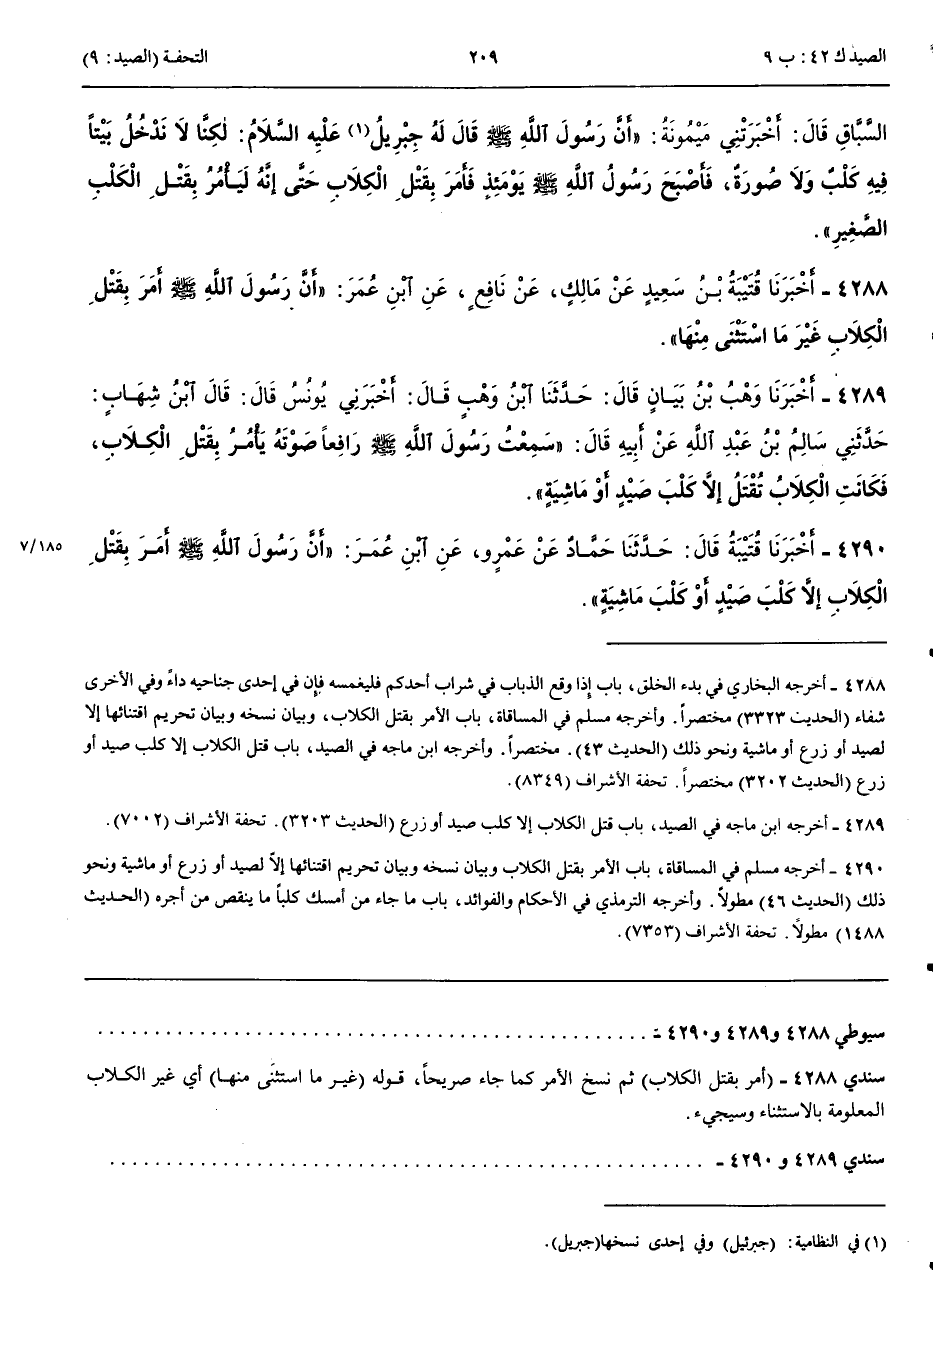 الصيد ك ٤٢: ب ٩ ٢٠٩ التحفة (الصيد: ٩)
السَّبَّاقِ قَالَ: أَخْبَرَتْنِي مَيْمُونَةُ: «أَنَّ رَسُولَ ٱللَّهِ ﷺ قَالَ لَهُ جِبْرِيلُ(١) عَلَيْهِ السَّلَامُ: لٰكِنَّا لَا نَدْخُلُ بَيْتاً
فِيهِ كَلْبٌ وَلَا صُورَةٌ، فَأَصْبَحَ رَسُولُ ٱللَّهِ ﷺ يَوْمَئِذٍ فَأَمَرَ بِقَتْلِ الْكِلَابِ حَتَّى إِنَّهُ لَيَأْمُرُ بِقَتْلِ الْكَلْبِ
الصَّغِيرِ».
٤٢٨٨ - أَخْبَرَنَا قُتَيْبَةُ بْنُ سَعِيدٍ عَنْ مَالِكٍ، عَنْ نَافِعٍ، عَنِ ٱبْنِ عُمَرَ: «أَنَّ رَسُولَ ٱللَّهِ ﷺ أَمَرَ بِقَتْلِ
الْكِلَابِ غَيْرَ مَا اسْتَثْنَى مِنْهَا».
٤٢٨٩ - أَخْبَرَنَا وَهْبُ بْنُ بَيَانٍ قَالَ: حَدَّثَنَا ٱبْنُ وَهْبٍ قَالَ: أَخْبَرَنِي يُونُسُ قَالَ: قَالَ ٱبْنُ شِهَابٍ:
حَدَّثَنِي سَالِمُ بْنُ عَبْدِ ٱللَّهِ عَنْ أَبِيهِ قَالَ: «سَمِعْتُ رَسُولَ ٱللَّهِ ﷺ رَافِعاً صَوْتَهُ يَأْمُرُ بِقَتْلِ الْكِلَابِ،
فَكَانَتِ الْكِلَابُ تُقْتَلُ إِلَّا كَلْبَ صَيْدٍ أَوْ مَاشِيَةٍ».
٤٢٩٠ - أَخْبَرَنَا قُتَيْبَةُ قَالَ: حَدَّثَنَا حَمَّادٌ عَنْ عَمْرٍو، عَنِ ٱبْنِ عُمَرَ: «أَنَّ رَسُولَ ٱللَّهِ ﷺ أَمَرَ بِقَتْلِ ٧/١٨٥
الْكِلَابِ إِلَّا كَلْبَ صَيْدٍ أَوْ كَلْبَ مَاشِيَةٍ».
٤٢٨٨ - أخرجه البخاري في بدء الخلق، باب إذا وقع الذباب في شراب أحدكم فليغمسه فإن في إحدى جناحيه داءً وفي الأخرى
شفاء (الحديث ٣٣٢٣) مختصراً. وأخرجه مسلم في المساقاة، باب الأمر بقتل الكلاب، وبيان نسخه وبيان تحريم اقتنائها إلا
لصيد أو زرع أو ماشية ونحو ذلك (الحديث ٤٣). مختصراً. وأخرجه ابن ماجه في الصيد، باب قتل الكلاب إلا كلب صيد أو
زرع (الحديث ٣٢٠٢) مختصراً. تحفة الأشراف (٨٣٤٩).
٤٢٨٩ - أخرجه ابن ماجه في الصيد، باب قتل الكلاب إلا كلب صيد أو زرع (الحديث ٣٢٠٣). تحفة الأشراف (٧٠٠٢).
٤٢٩٠ - أخرجه مسلم في المساقاة، باب الأمر بقتل الكلاب وبيان نسخه وبيان تحريم اقتنائها إلاّ لصيد أو زرع أو ماشية ونحو
ذلك (الحديث ٤٦) مطولاً. وأخرجه الترمذي في الأحكام والفوائد، باب ما جاء من أمسك كلباً ما ينقص من أجره (الحديث
١٤٨٨) مطولاً. تحفة الأشراف (٧٣٥٣).
سيوطي ٤٢٨٨ و٤٢٨٩ و٤٢٩٠ - . . . . . . . . . . . . . . . . . . . . . . . . . . . . . . . . . . . . . . . .
سندي ٤٢٨٨ - (أمر بقتل الكلاب) ثم نسخ الأمر كما جاء صريحاً، قوله (غير ما استثنَى منها) أي غير الكلاب
المعلومة بالاستثناء وسيجيء.
سندي ٤٢٨٩ و ٤٢٩٠ - . . . . . . . . . . . . . . . . . . . . . . . . . . . . . . . . . . . . . . . .
(١) في النظامية: (جبرئيل) وفي إحدى نسخها(جبريل).